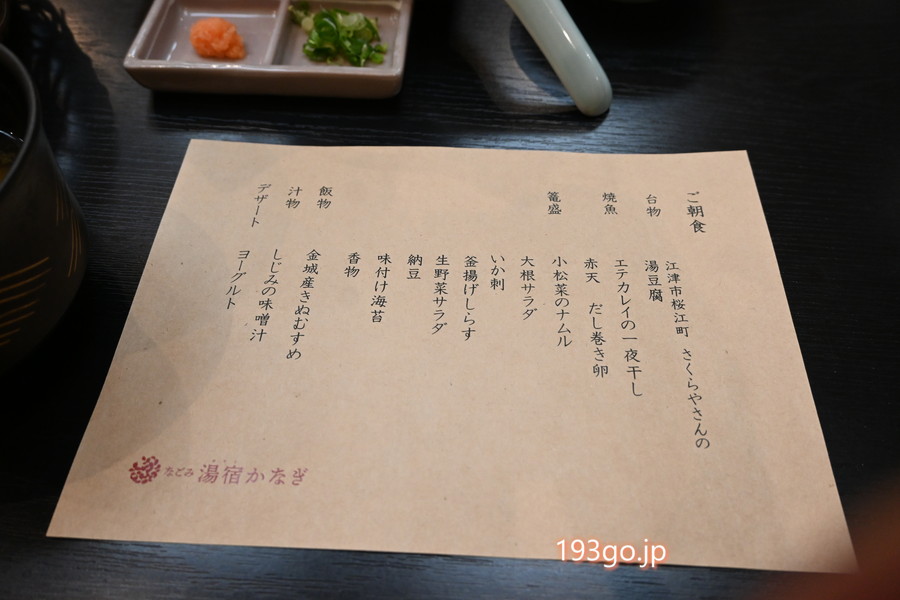 ご朝食
江津市桜江町 さくらやさんの
台物 湯豆腐
焼魚 エテカレイの一夜干し
赤天 だし巻き卵
篭盛 小松菜のナムル
大根サラダ
いか刺
釜揚げしらす
生野菜サラダ
納豆
味付け海苔
香物
飯物 金城産きぬむすめ
汁物 しじみの味噌汁
デザート ヨーグルト
なごみ 湯宿かなぎ
193go.jp